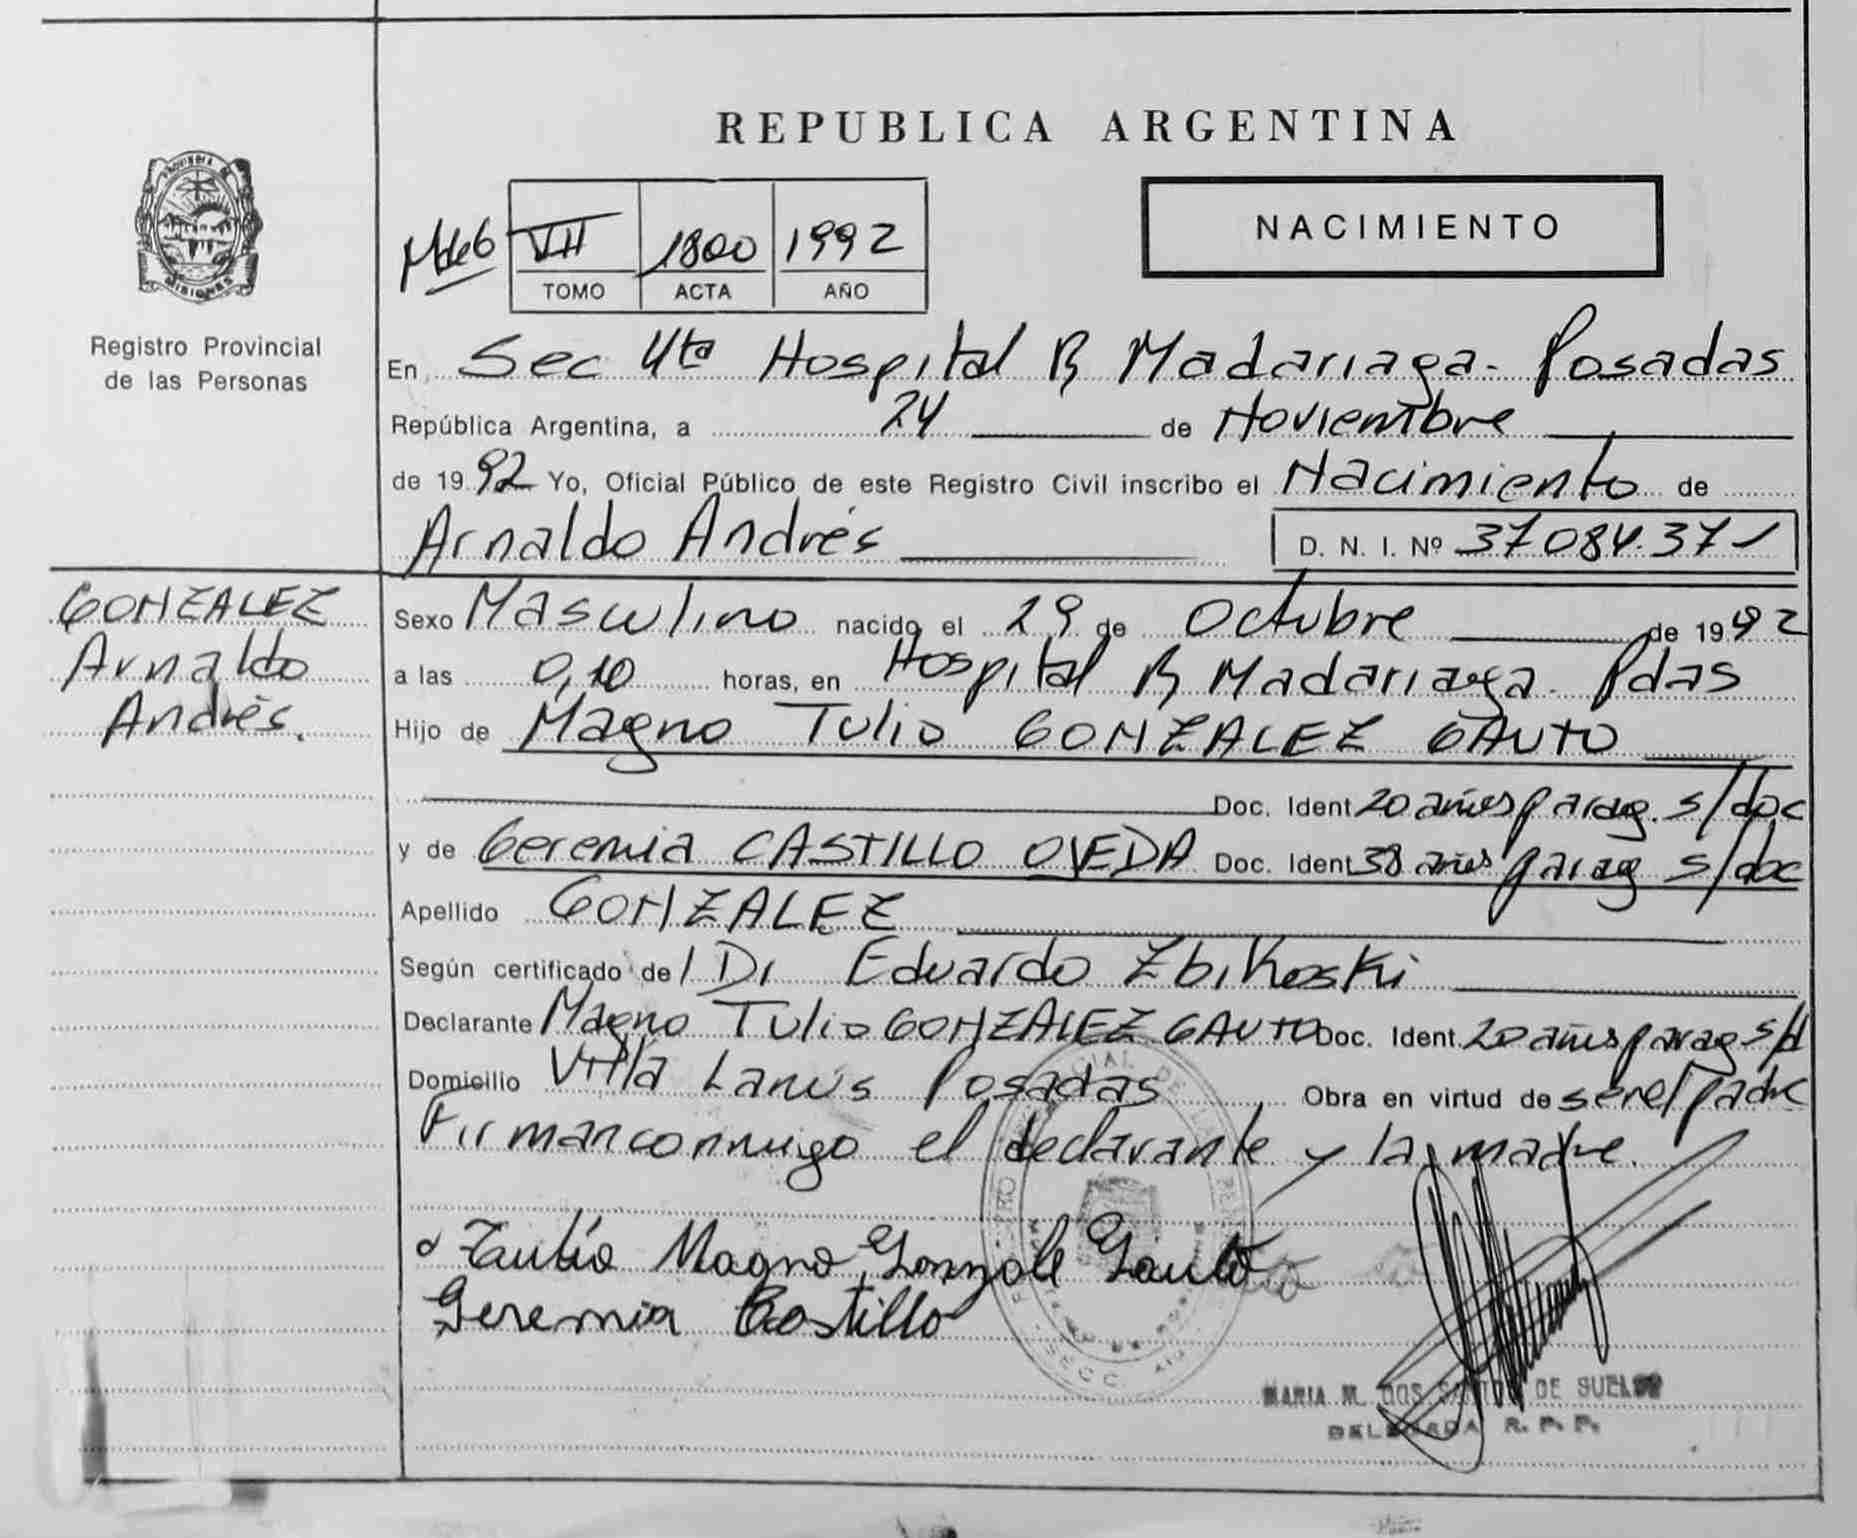 REPUBLICA ARGENTINA
PROVINCIA DE MISIONES
Registro Provincial
de las Personas
VII 1800 1992
TOMO ACTA AÑO
NACIMIENTO
En Sec 4ta Hospital R Madariaga - Posadas
República Argentina, a 24 de Noviembre
de 1992 Yo, Oficial Público de este Registro Civil inscribo el Nacimiento de
Arnaldo Andrés D. N. I. Nº 37084.371
GONZALEZ
Arnaldo
Andrés.
Sexo Masculino nacido el 29 de Octubre de 1992
a las 0,10 horas, en Hospital R Madariaga - Pdas
Hijo de Magno Tulio GONZALEZ GAUTO
Doc. Ident 20 años parag. s/doc
y de Geremia CASTILLO OJEDA Doc. Ident 38 años parag s/doc
Apellido GONZALEZ
Según certificado de l Dr Eduardo Zbikoski
Declarante Magno Tulio GONZALEZ GAUTO Doc. Ident. 20 años parag s/d
Domicilio Villa Lanus Posadas Obra en virtud de ser el padre
Firman conmigo el declarante y la madre.
Tulio Magno Gonzale Gauto
Geremia Castillo
MARIA M. DOS SANTOS DE
DELEGADA R. P. P.